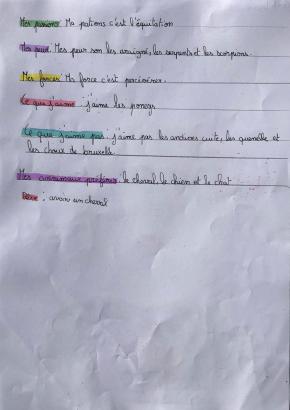 Mes passions Ma pations c'est l'équitation
Mes peur. Mes peur son les araignés, les serpents et les scorpions.
Mes forces Ma force c'est
Ce que j'aime : j'aime les poneys
Ce que j'aime pas : j'aime pas les andives cuite, les quenelle et
les choux de bruxell.
Mes animaux préférés : le cheval, le chien et le chat
Rêve : avoir un cheval